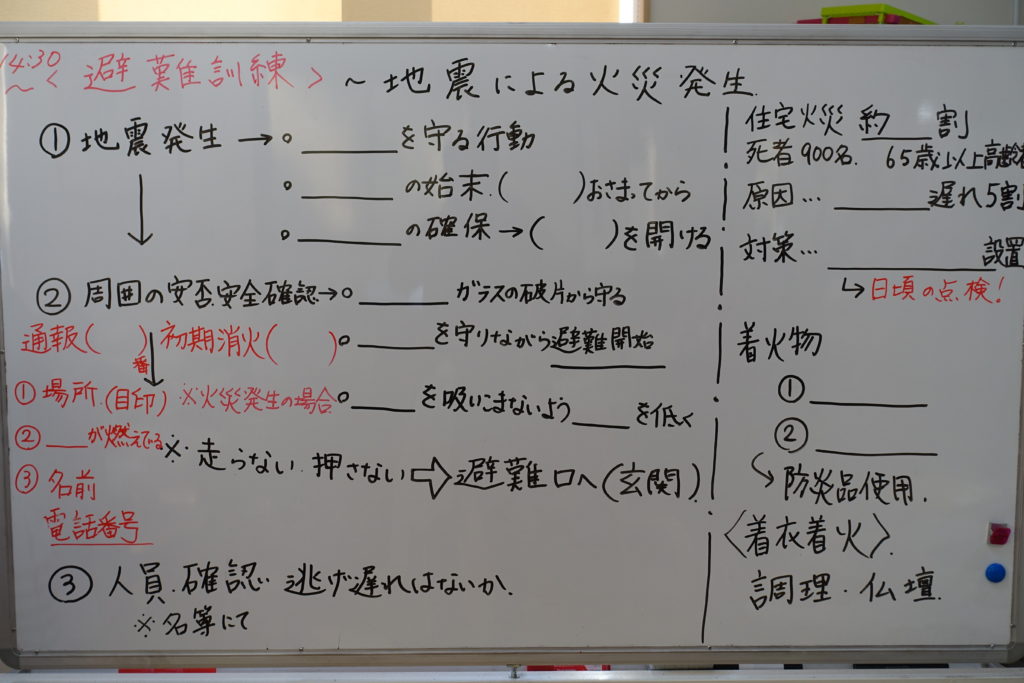 14:30～
〈避難訓練〉～地震による火災発生
①地震発生→○______を守る行動
○______の始末.(　　)おさまってから
○______の確保→(　　)を開ける
②周囲の安否安全確認→○______ガラスの破片から守る
通報(　　)番 初期消火(　　)
○______を守りながら避難開始
①場所.(目印) ※火災発生の場合
○____を吸いこまないよう____を低く
②___が燃えてる
※走らない.押さない⇨避難口へ(玄関)
③名前
電話番号
③人員.確認.逃げ遅れはないか.
※名簿にて
住宅火災 約___割
死者900名. 65歳以上高齢
原因…______遅れ5割
対策…__________設置
↳日頃の点検!
着火物
①________
②________
↳防炎品使用.
〈着衣着火〉.
調理・仏壇.